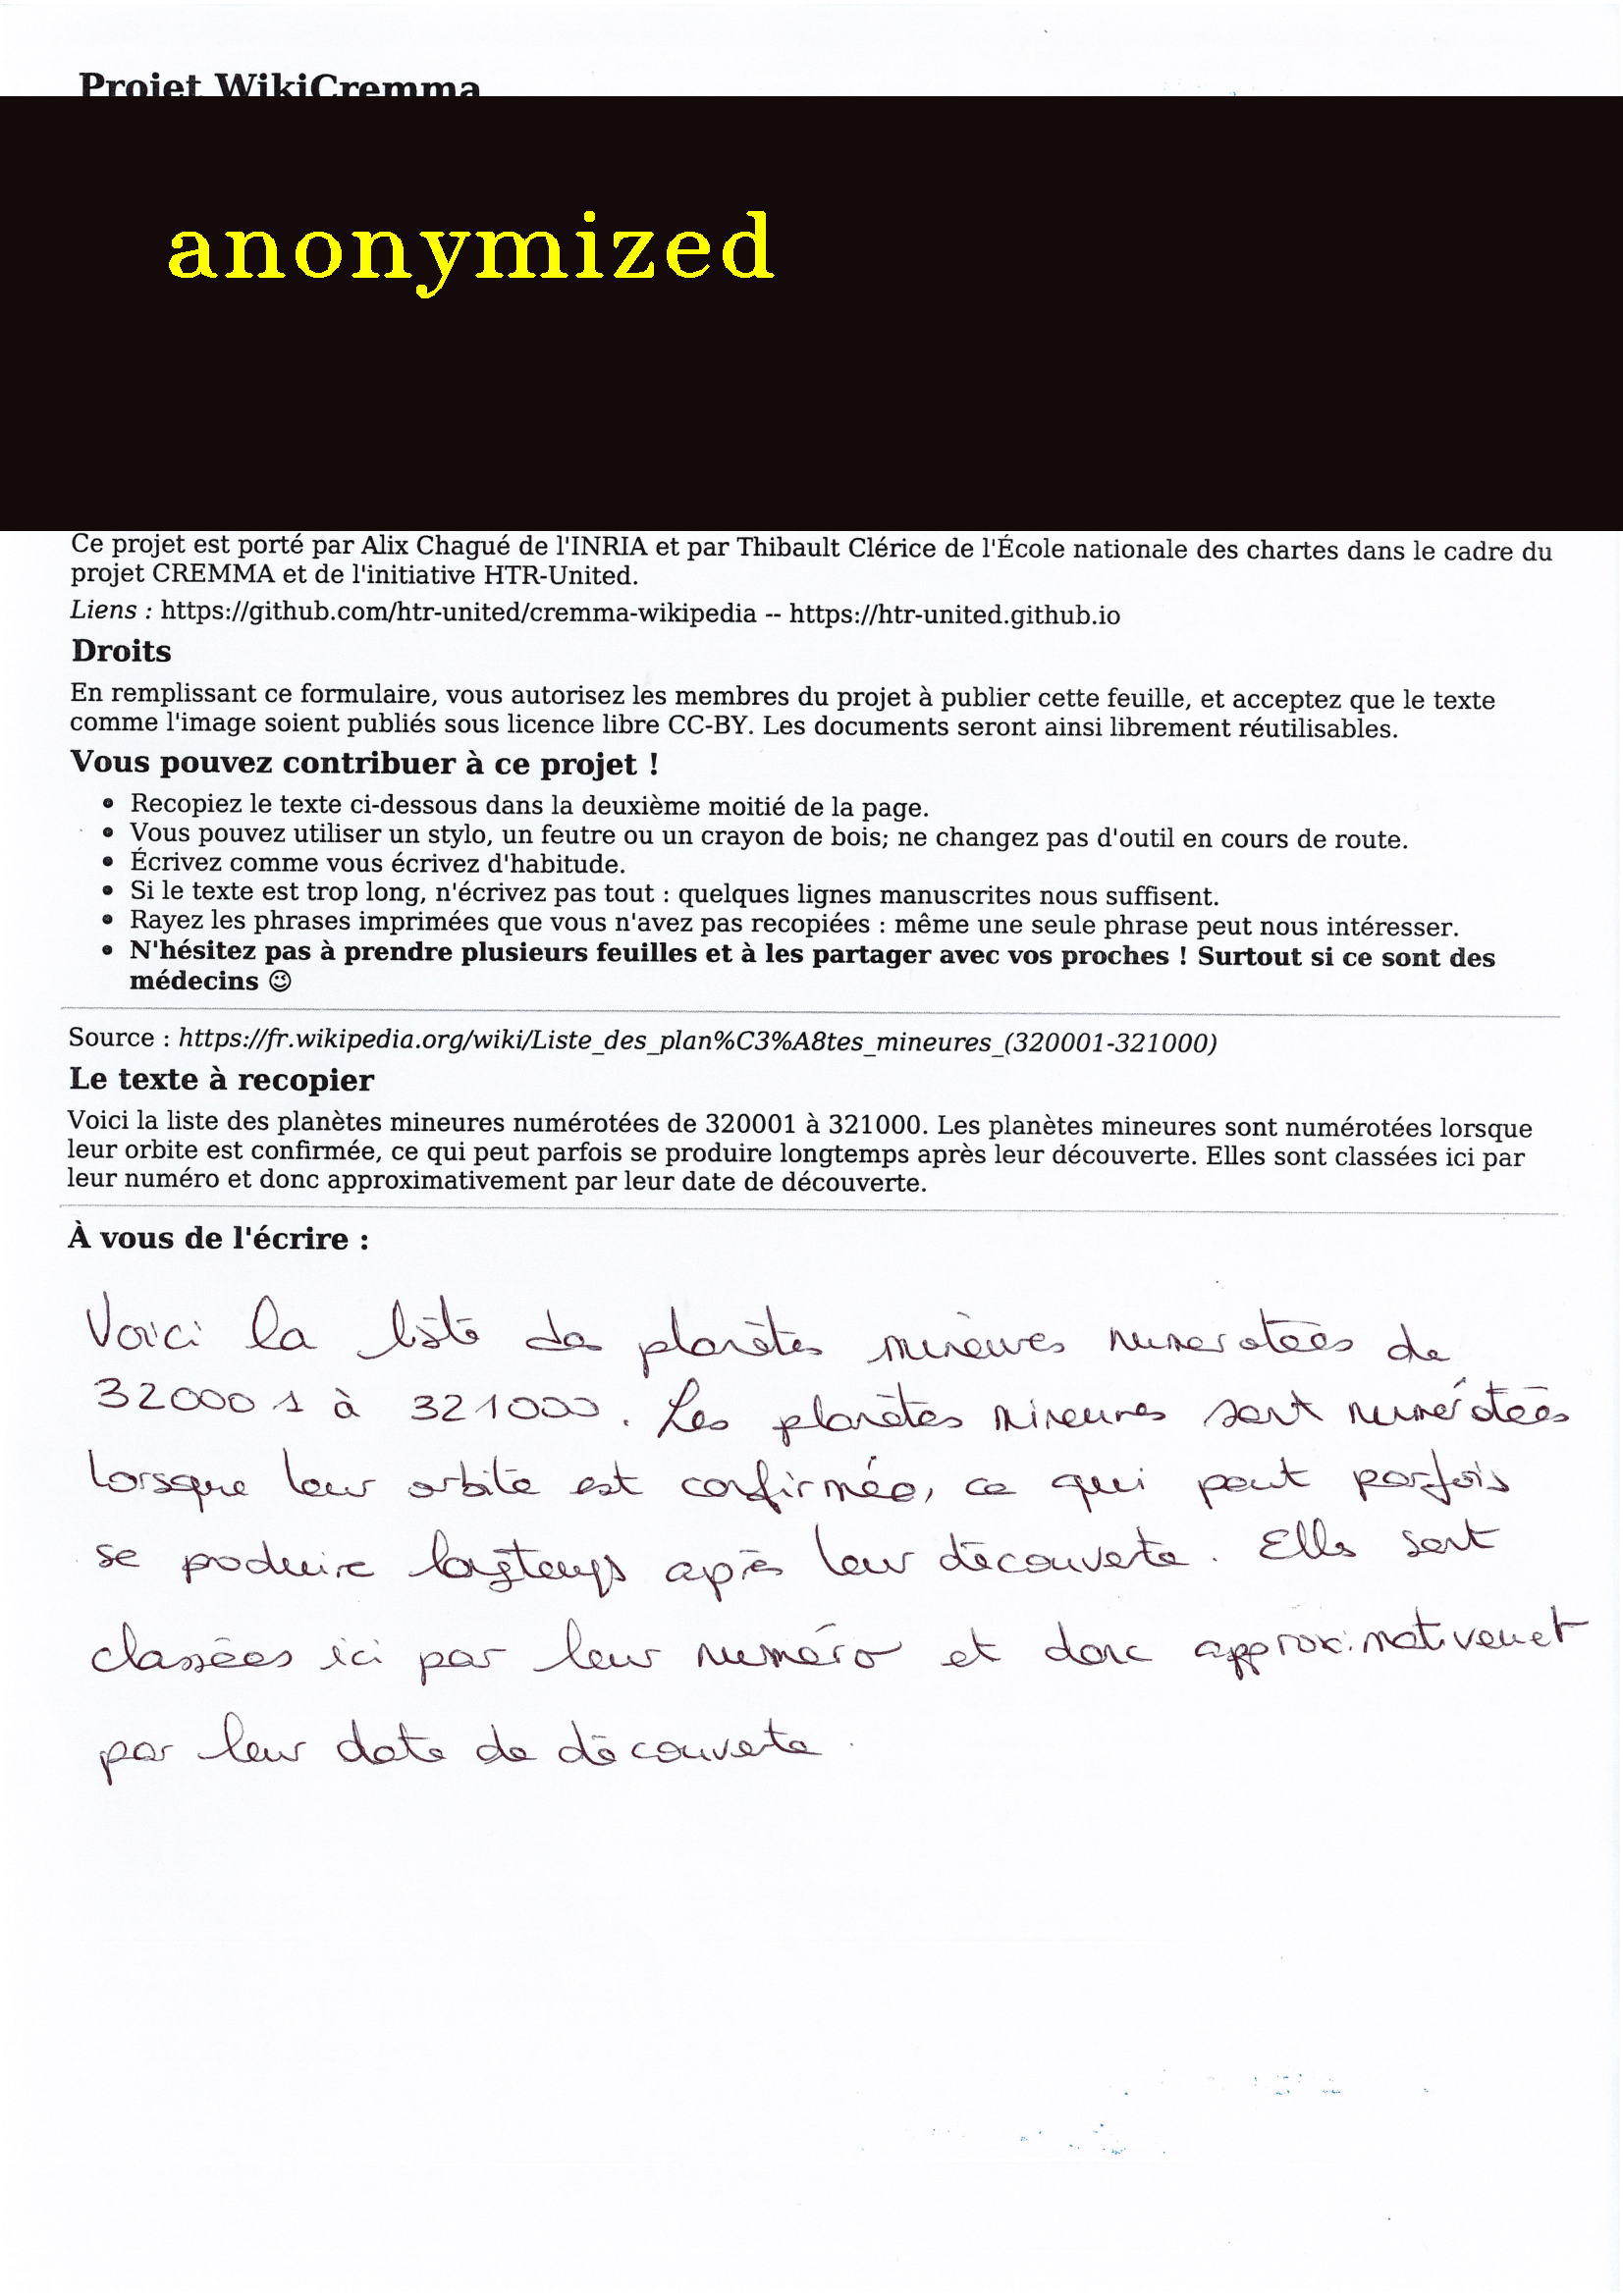 Projet WikiCremma
anonymized
Ce projet est porté par Alix Chagué de l'INRIA et par Thibault Clérice de l'École nationale des chartes dans le cadre du
projet CREMMA et de l'initiative HTR-United.
Liens : https://github.com/htr-united/cremma-wikipedia -- https://htr-united.github.io
Droits
En remplissant ce formulaire, vous autorisez les membres du projet à publier cette feuille, et acceptez que le texte
comme l'image soient publiés sous licence libre CC-BY. Les documents seront ainsi librement réutilisables.
Vous pouvez contribuer à ce projet !
• Recopiez le texte ci-dessous dans la deuxième moitié de la page.
• Vous pouvez utiliser un stylo, un feutre ou un crayon de bois; ne changez pas d'outil en cours de route.
• Écrivez comme vous écrivez d'habitude.
• Si le texte est trop long, n'écrivez pas tout : quelques lignes manuscrites nous suffisent.
• Rayez les phrases imprimées que vous n'avez pas recopiées : même une seule phrase peut nous intéresser.
• N'hésitez pas à prendre plusieurs feuilles et à les partager avec vos proches ! Surtout si ce sont des
médecins ☺
Source : https://fr.wikipedia.org/wiki/Liste_des_plan%C3%A8tes_mineures_(320001-321000)
Le texte à recopier
Voici la liste des planètes mineures numérotées de 320001 à 321000. Les planètes mineures sont numérotées lorsque
leur orbite est confirmée, ce qui peut parfois se produire longtemps après leur découverte. Elles sont classées ici par
leur numéro et donc approximativement par leur date de découverte.
À vous de l'écrire :
Voici la liste des planètes mineures numérotées de
320001 à 321000. Les planètes mineures sont numérotées
lorsque leur orbite est confirmée, ce qui peut parfois
se produire longtemps après leur découverte. Elles sont
classées ici par leur numéro et donc approximativement
par leur date de découverte.